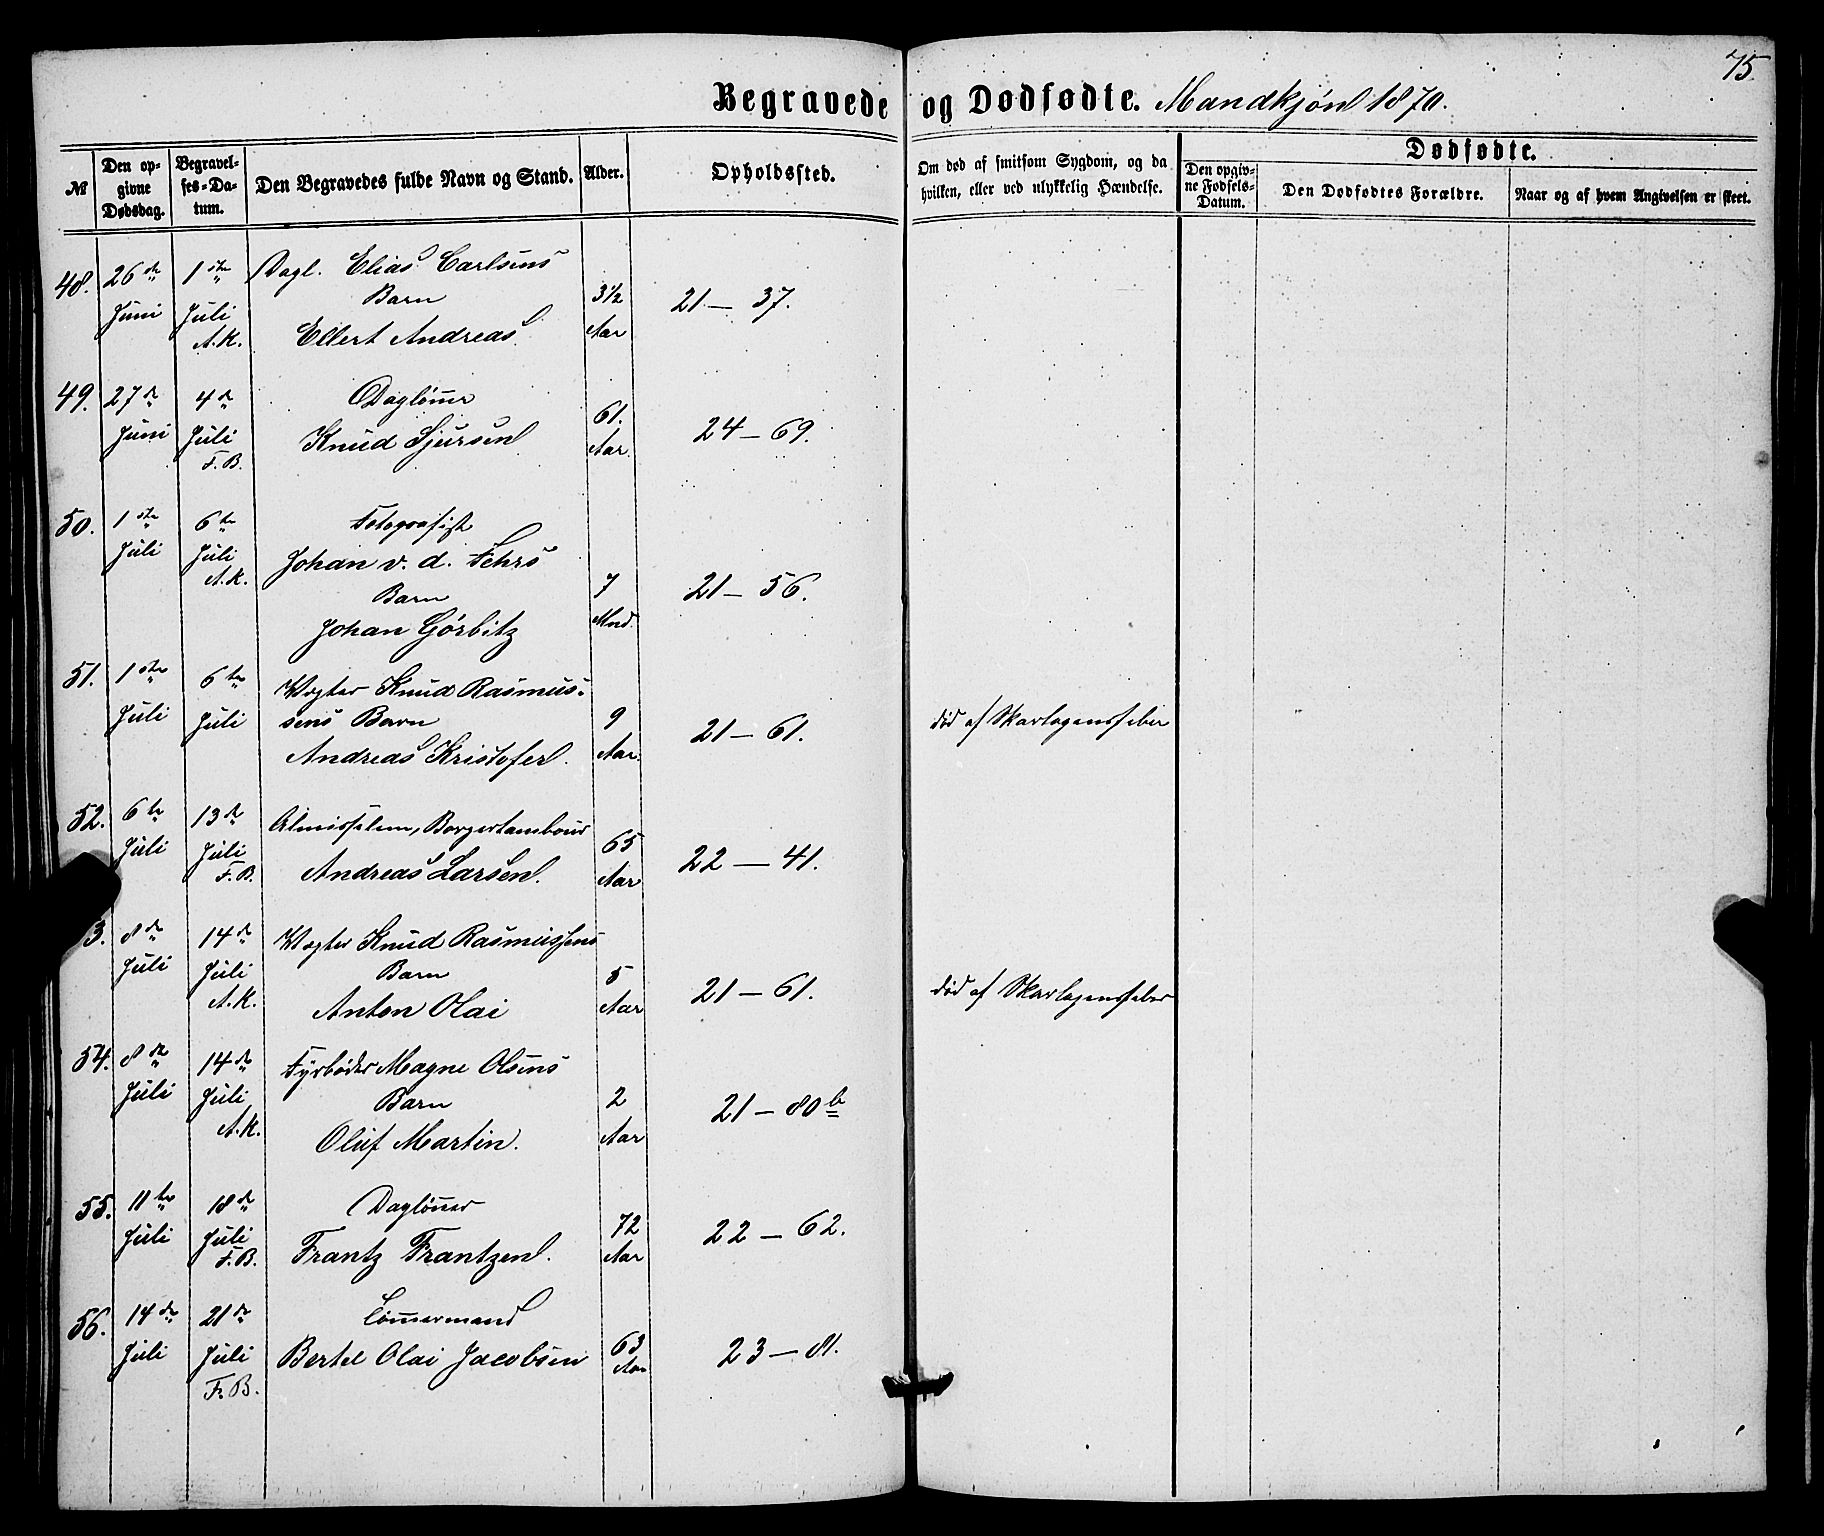 75.
Begravede og Dødfødte. Mandkjøn 1870.
№
Den opgivne Dødsdag.
Begravelses-Datum.
Den Begravedes fulde Navn og Stand.
Alder.
Opholdssted.
Om død af smitsom Sygdom, og da hvilken, eller ved ulykkelig Hændelse.
Dødfødte.
Den opgivne Fødsels-Datum.
Den Dødfødtes Forældre.
Naar og af hvem Angivelsen er skeet.
48. 26de Juni 1ste Juli A.K.
Dagl. Elias Carlsens
Barn
Ellert Andreas
3½ Aar
21 — 37.
49. 27de Juni 4de Juli F.B.
Dagløner
Knud Sjursen
61. Aar.
24 — 69.
50. 1ste Juli 6te Juli A.K.
Fotografist
Johan v. d. Fehrs
Barn
Johan Görbitz
7 Mnd.
21 — 56.
51. 1ste Juli 6te Juli
Vægter Knud Rasmus-
sens Barn
Andreas Kristofer.
9 Aar.
21 — 61.
død af Skarlagensfeber
52. 6te Juli 13de Juli F.B.
Almisselem, Borgertambour
Andreas Larsen.
65 Aar
22 — 41.
3. 8de Juli 14de Juli A.K.
Vægter Knud Rasmussens
Barn
Anton Olai
5 Aar
21 — 61.
død af Skarlagensfeber
54. 8de Juli 14de Juli A.K.
Fyrbøder Magne Olsens
Barn
Oluf Martin.
2 Aar
21 — 80b
55. 11te Juli 18de Juli F.B.
Dagløner
Frantz Frantzen.
72 Aar
22 — 62.
56. 14de Juli 21de Juli F.B.
Tømmermand
Bertel Olai Jacobsen
63 Aar
23 — 81.